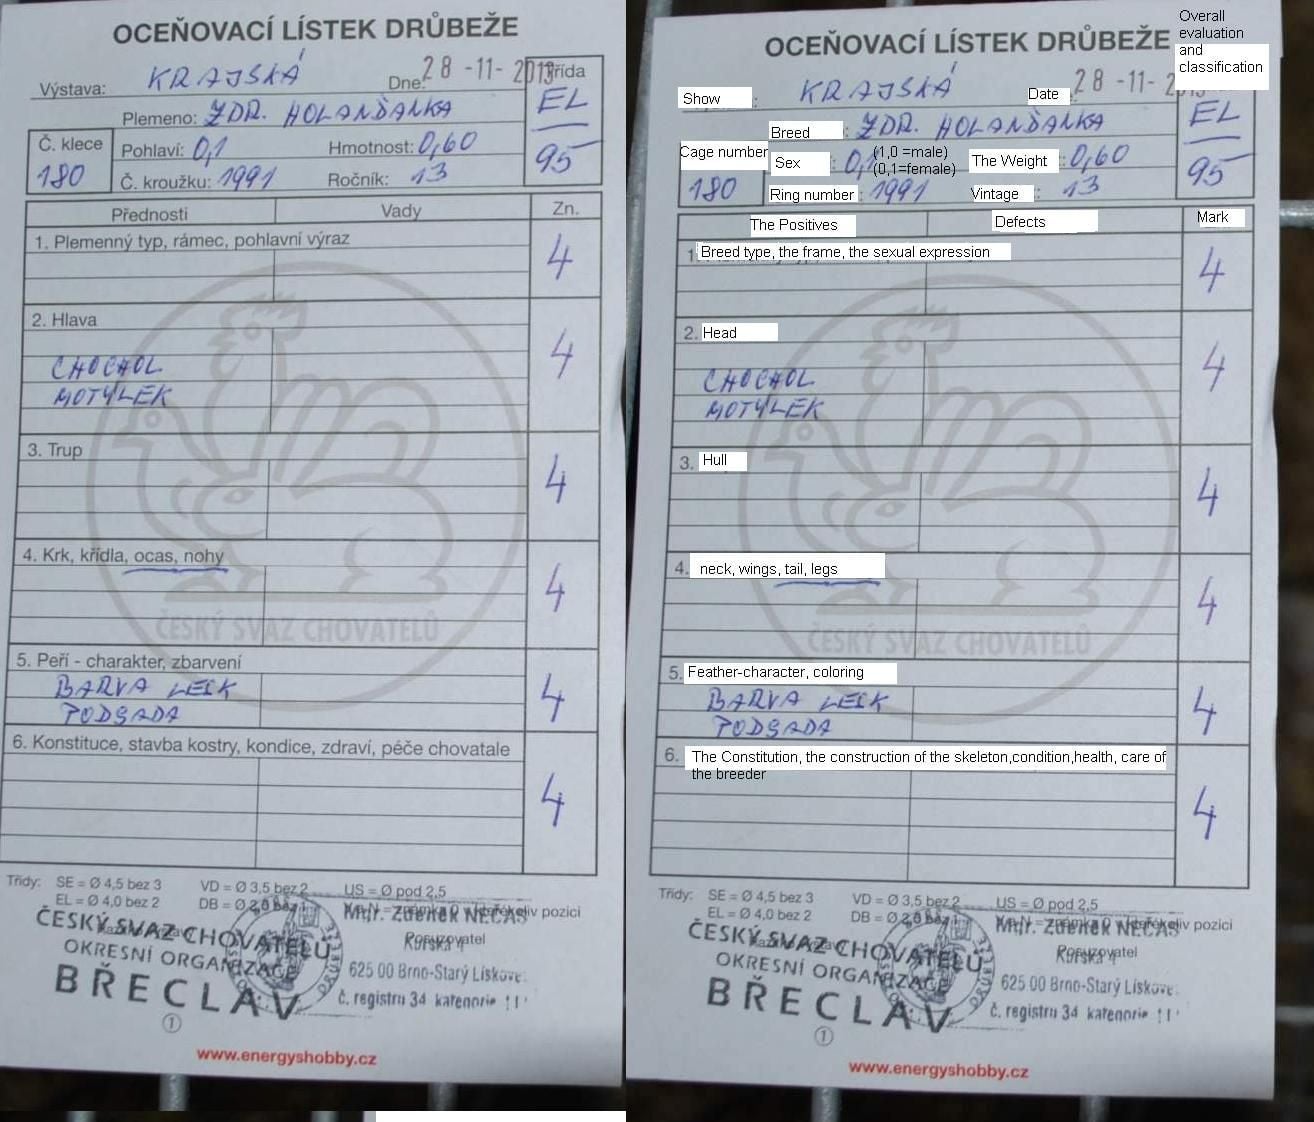 OCEŇOVACÍ LÍSTEK DRŮBEŽE
Výstava: KRAJSKÁ Dne: 28 -11- 2013 Třída
Plemeno: ZDR. HOLANĎANKA EL
Č. klece Pohlaví: 0,1 Hmotnost: 0,60 95
180 Č. kroužku: 1991 Ročník: 13
Přednosti Vady Zn.
1. Plemenný typ, rámec, pohlavní výraz 4
2. Hlava 4
CHOCHOL
MOTÝLEK
3. Trup 4
4. Krk, křídla, ocas, nohy 4
ČESKÝ SVAZ CHOVATELŮ
5. Peří - charakter, zbarvení 4
BARVA LESK
PODSADA
6. Konstituce, stavba kostry, kondice, zdraví, péče chovatale 4
Třídy: SE = Ø 4,5 bez 3 VD = Ø 3,5 bez 2 US = Ø pod 2,5
EL = Ø 4,0 bez 2 DB = Ø 2,0 bez 1
ČESKÝ SVAZ CHOVATELŮ
OKRESNÍ ORGANIZACE
BŘECLAV
1
Zdeněk NEČAS
pozici
Posuzovatel
625 00 Brno-Starý Lískove
č. registru 34
www.energyshobby.cz
OCEŇOVACÍ LÍSTEK DRŮBEŽE
Overall
evaluation
and
classification
Show : KRAJSKÁ Date 28 -11-
Breed : ZDR. HOLANĎANKA EL
Cage number Sex : 0,1 (1,0 =male) The Weight : 0,60 95
(0,1=female)
180 Ring number : 1991 Vintage : 13
The Positives Defects Mark
1 Breed type, the frame, the sexual expression 4
2. Head 4
CHOCHOL
MOTÝLEK
3. Hull 4
4. neck, wings, tail, legs 4
ČESKÝ SVAZ CHOVATELŮ
5. Feather-character, coloring 4
BARVA LESK
PODSADA
6. The Constitution, the construction of the skeleton,condition,health, care of
the breeder 4
Třídy: SE = Ø 4,5 bez 3 VD = Ø 3,5 bez 2 US = Ø pod 2,5
EL = Ø 4,0 bez 2 DB = Ø 2,0 bez 1
ČESKÝ SVAZ CHOVATELŮ
OKRESNÍ ORGANIZACE
BŘECLAV
1
Zdeněk NEČAS
pozici
Posuzovatel
625 00 Brno-Starý Lískove
č. registru 34
www.energyshobby.cz